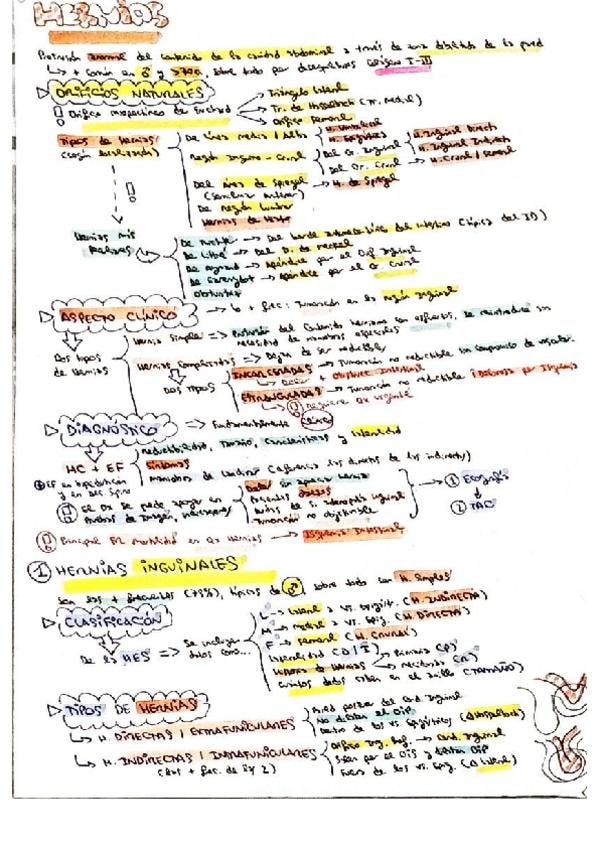 HERNIAS
Protrusión anormal del contenido de la cavidad abdominal a través de zona debilitada de la pared
↳ + común en ♂ y >70a, sobre todo por
ORIFICIOS NATURALES
Orificio miopectíneo de Fruchaud → Triángulo Lateral
→ Tr. de Hesselbach (Tr. Medial)
→ Orificio femoral
Tipos de Hernias (según localización)
De línea media / Alba → H. Umbilical
H. Epigástrica
Región Inguino - Crural → Del Or. Inguinal → H. Inguinal Directa
H. Inguinal Indirecta
Del Or. Crural → H. Crural / Femoral
Del área de Spiegel → H. de Spiegel
(Semilunar)
De Región Lumbar
Hernias más
De Richter → Del borde antimesentérico del intestino (típica del ID)
De Littré → Del D. de Meckel
De Amyand → Apéndice por el Orif Inguinal
De Garengeot → Apéndice por el Or. Crural
Obturatriz
ASPECTO CLÍNICO → Lo + frec: Tumoración en la región inguinal
Dos tipos de Hernias
Hernia Simple → del contenido herniario con esfuerzos, se reintroduce sin
necesidad de maniobras especiales
Hernias Complicadas → Dejan de ser reductibles
Dos Tipos
INCARCERADAS → Tumoración no reductible sin compromiso vascular
↳ Dolor + Obstruc Intestinal
ESTRANGULADAS → Tumoración no reductible, Dolorosa por Isquemia
↳ Requiere Qx urgente
DIAGNÓSTICO => Fundamentalmente Clínico
HC + EF
Reductibilidad, Tamaño, Características y Lateralidad
Síntomas
Maniobra de Landivar (diferencia las directas de las indirectas)
EF en bipedestación y en dec. Supino
El Dx se puede apoyar en Pruebas de Imagen,
Dolor sin aparente hernia
Tumoración no objetivable
→ ① Ecografía
② TAC
Principal FR mortalidad en Qx Hernias → Isquemia Intestinal
① HERNIAS INGUINALES
Son las + frecuentes (75%), típicas de ♂, sobre todo son H. Simples
CLASIFICACIÓN
De la HES => Se incluyen datos como...
L → Lateral a vs. epigást. (H. INDIRECTA)
M → medial a vs. epig. (H. DIRECTA)
F → femoral (H. Crural)
Lateralidad (D / I)
→ Primaria (P)
→ Recidivada (R)
Cuántos dedos caben en el anillo (TAMAÑO)
TIPOS DE HERNIAS
↳ H. DIRECTAS / EXTRAFUNICULARES
Pared posterior del Cond Inguinal
No dilatan el OIP
Dentro de los vs. Epigástricos (Δ Hesselbach)
↳ H. INDIRECTAS / INTRAFUNICULARES
(Las + frec. de ♂ y ♀)
Orificio Ing. Prof. → Cond. Inguinal
Salen por el OIS y dilatan OIP
Fuera de los vs. Epig. (Δ Lateral)